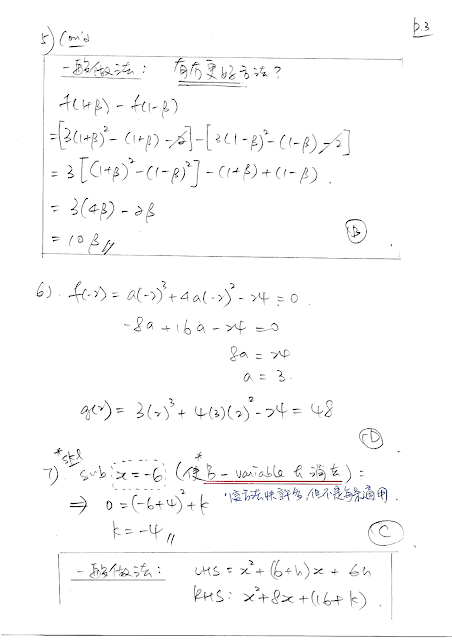 p.3
5) Con'd
一般做法： 有冇更好方法？
f(1+β) - f(1-β)
=[3(1+β)²-(1+β)-2]-[3(1-β)²-(1-β)-2]
= 3[(1+β)²-(1-β)²]-(1+β)+(1-β)
= 3(4β) - 2β
= 10β //
(B)
6). f(-2) = a(-2)³+4a(-2)²-24 = 0
-8a+16a-24 = 0
8a = 24
a = 3.
g(2) = 3(2)³+4(3)(2)²-24 = 48
(D)
*skl
7) sub x=-6 (使另一 variable h 消去):
⇒ 0=(-6+4)²+k *這方法快許多,但不是每條適用.
k=-4 //
(C)
一般做法： LHS = x²+(6+h)x + 6h
RHS: x²+8x+(16+k)